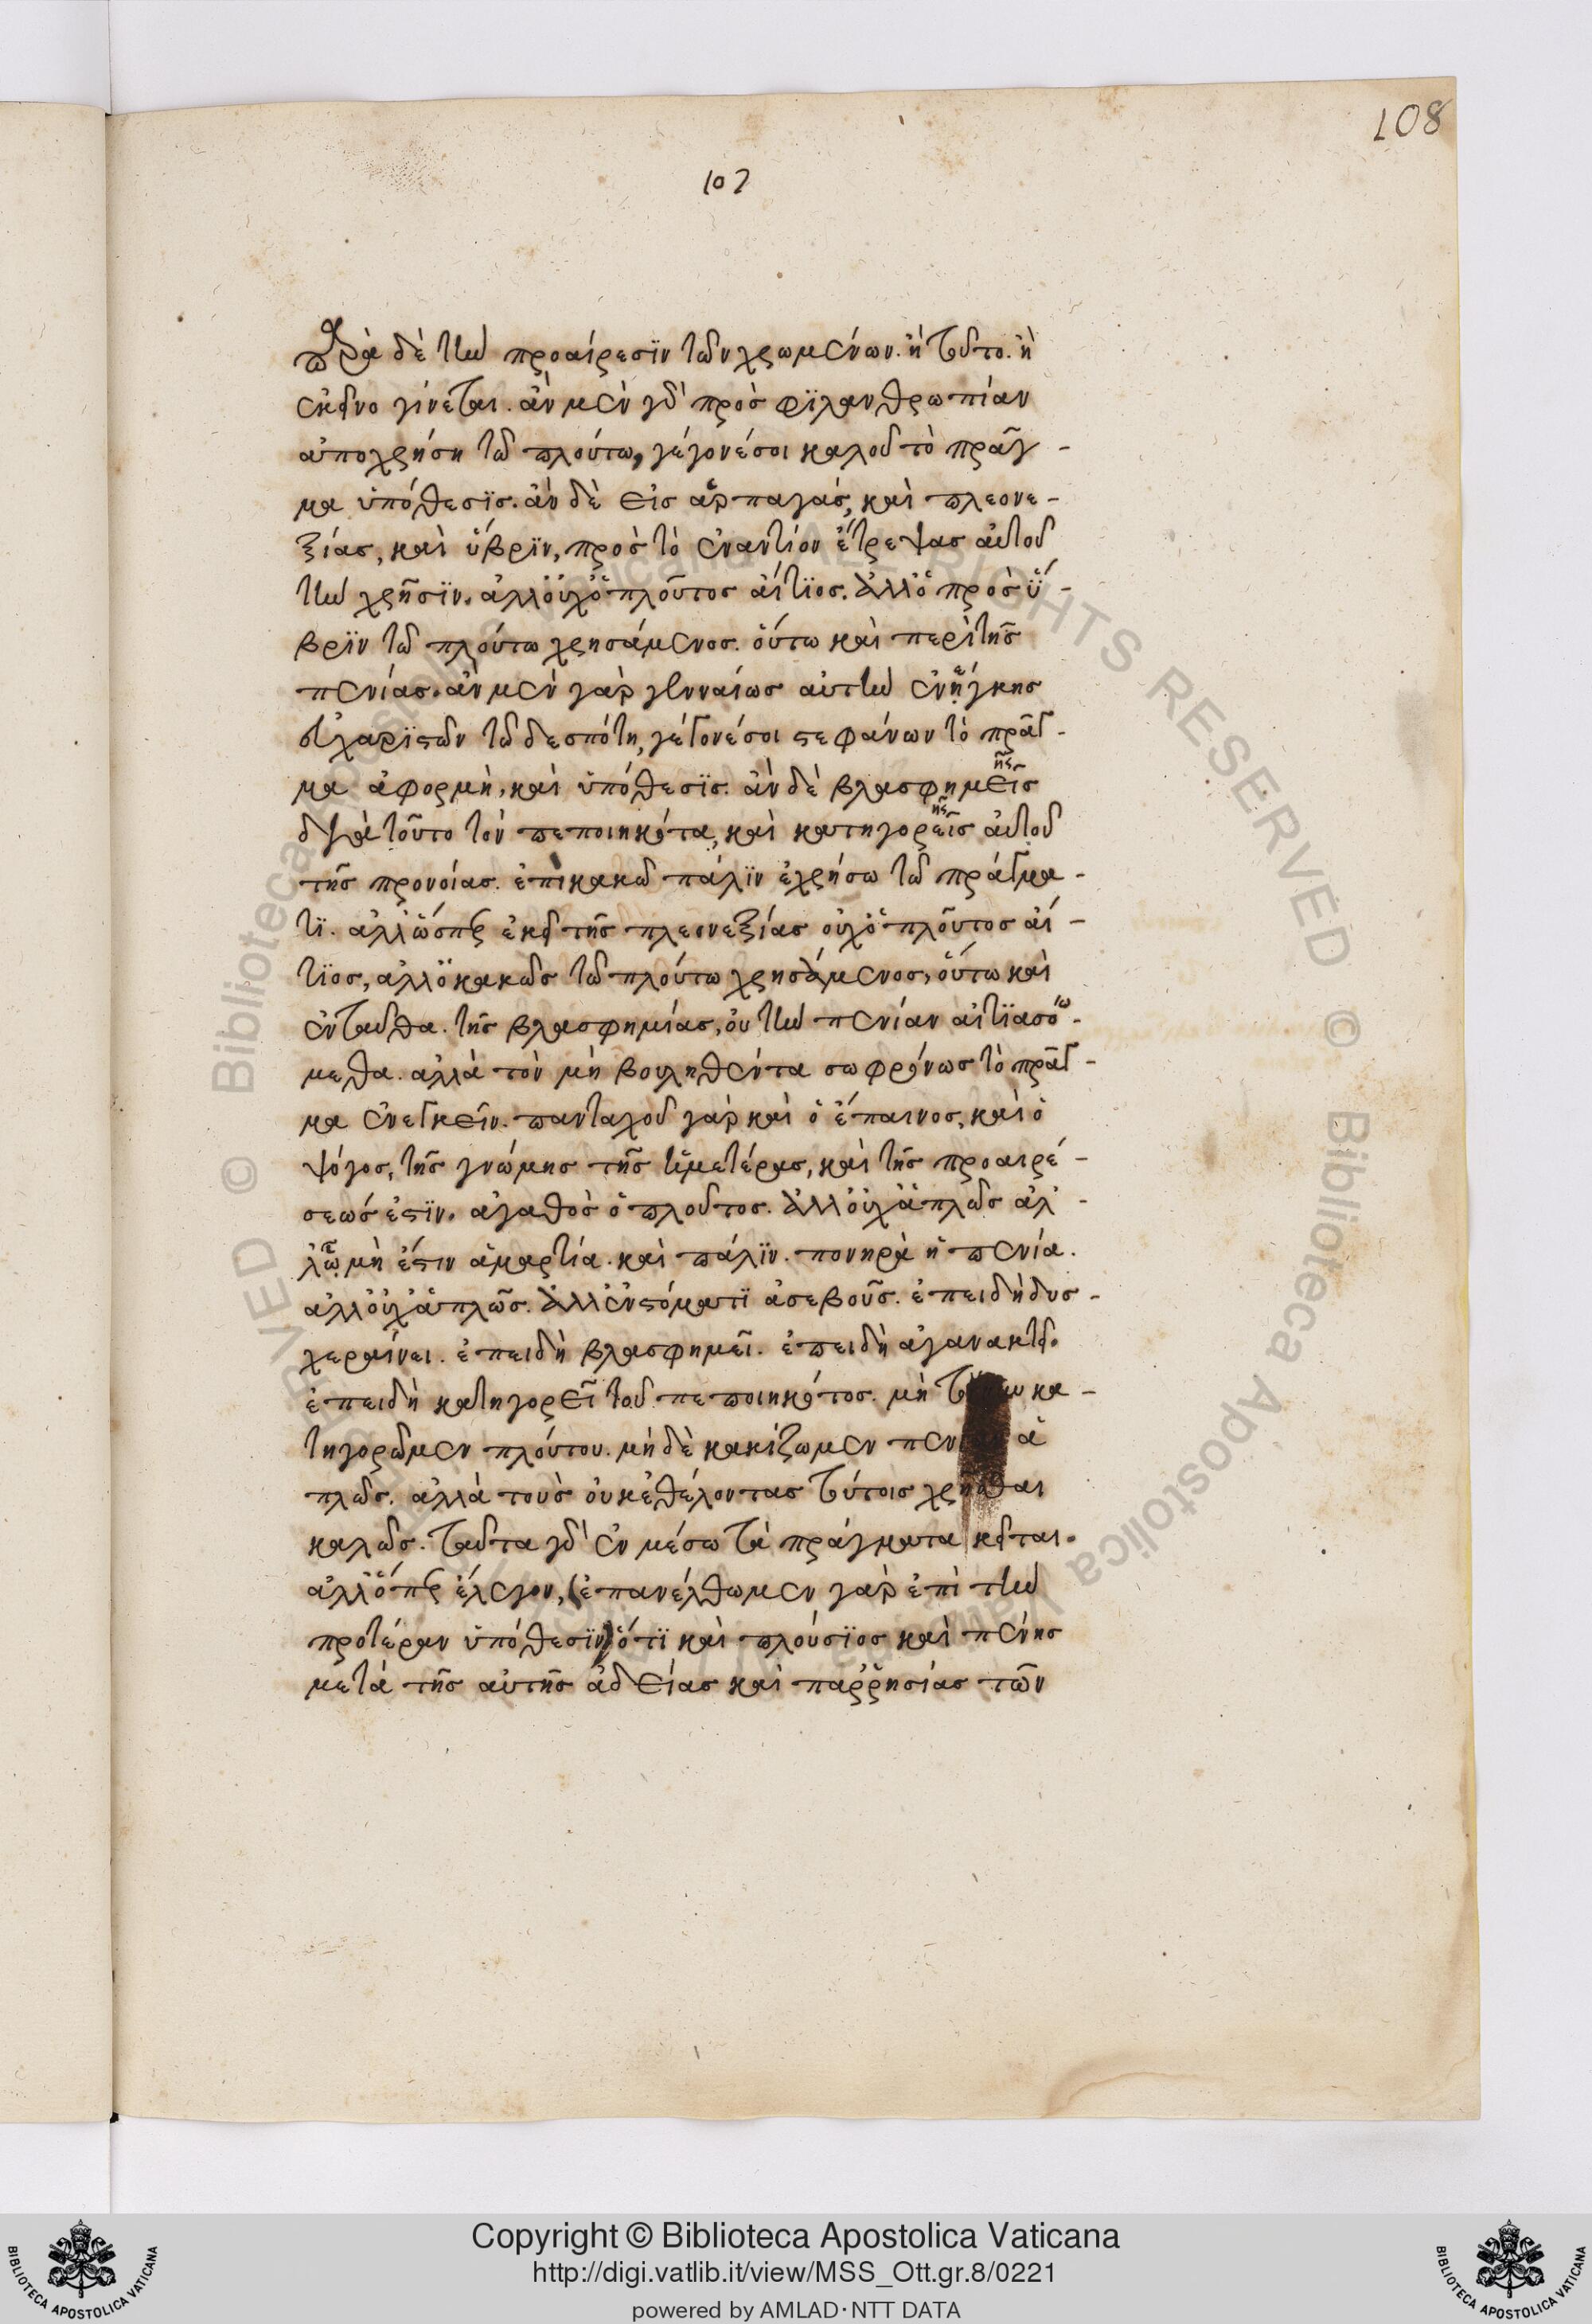 108
107
παρὰ δὲ τὴν προαίρεσϊν τῶν χρωμένων. ἢ τοῦτο. ἢ
ἐκεῖνο γίνεται. ἂν μὲν γὰρ πρὸς φϊλανθρωπίαν
ἀποχρήση τῶ πλούτω, γέγονέσοι καλοῦ τὸ πρᾶγ-
μα ὑπόθεσϊς. ἂν δὲ εἰς ἁρπαγὰς, καὶ πλεονε-
ξίας, καὶ ὕβρϊν, πρὸς τὸ ἐναντίον ἔτρεψας αὐτοῦ
τὴν χρῆσϊν. ἀλλ' οὐχ' ὁ πλοῦτος αἴτϊος. ἀλλ' ὁ πρὸς ὕ-
βρϊν τῶ πλούτω χρησάμενος. οὕτω καὶ περὶ τῆς
πενίας. ἂν μὲν γὰρ γενναίως αὐτὴν ἐνήγκης
εὐχαρϊστῶν τῶ δεσπότη, γέγονέσοι στεφάνων τὸ πρᾶγ-
μα ἀφορμὴ, καὶ ὑπόθεσϊς. ἂν δὲ βλασφημεῖς
ῆς
διὰ τοῦτο τὸν πεποιηκότα, καὶ κατηγορεῖς αὐτοῦ
ῆς
τῆς προνοίας. ἐπὶ κακῶ πάλϊν ἐχρήσω τῶ πράγμα-
τϊ. ἀλλ' ὥσπερ ἐκεῖ τῆς πλεονεξίας οὐχ' ὁ πλοῦτος αἴ-
τϊος, ἀλλ' ὁ κακῶς τῶ πλούτω χρησάμενος, οὕτω καὶ
ἐνταῦθα. τῆς βλασφημίας, οὐ τὴν πενίαν αἰτϊασό-
ώ
μεθα. ἀλλὰ τὸν μὴ βουληθέντα σωφρόνως τὸ πρᾶγ-
μα ἐνεγκεῖν. πανταχοῦ γὰρ καὶ ὁ ἔπαινος, καὶ ὁ
ψόγος, τῆς γνώμης τῆς ἡμετέρας, καὶ τῆς προαιρέ-
σεώς ἐστϊν. ἀγαθὸς ὁ πλοῦτος. ἀλλ' οὐχ' ἁπλῶς ἀλ-
λ' ᾧ μὴ ἔστιν ἁμαρτία. καὶ πάλϊν. πονηρὰ ἡ πενία.
ἀλλ' οὐχ' ἁπλῶς. ἀλλ' ἐν στόματϊ ἀσεβοῦς. ἐπειδὴ δυσ-
χεραίνει. ἐπειδὴ βλασφημεῖ. ἐπειδὴ ἀγανακτεῖ.
ἐπειδὴ κατηγορεῖ τοῦ πεποιηκότος. μὴ κα-
τηγορῶμεν πλούτου. μὴ δὲ κακίζωμεν πεν ἁ
πλῶς. ἀλλὰ τοὺς οὐκ ἐθέλοντας τούτοις χρῆσθαι
καλῶς. ταῦτα γὰρ ἐν μέσω τὰ πράγματα κεῖται.
ἀλλ' ὅπερ ἔλεγον, (ἐπανέλθωμεν γὰρ ἐπὶ τὴν
προτέραν ὑπόθεσϊν) ὅτϊ καὶ πλούσϊος καὶ πένης
μετὰ τῆς αὐτῆς ἀδείας καὶ παῤῥησίας τῶν
© Biblioteca Apostolica Vaticana ALL RIGHTS RESERVED © Biblioteca Apostolica Vaticana ALL RIGHTS RESERVED
BIBLIOTECA APOSTOLICA VATICANA
Copyright © Biblioteca Apostolica Vaticana
http://digi.vatlib.it/view/MSS_Ott.gr.8/0221
powered by AMLAD·NTT DATA
BIBLIOTECA APOSTOLICA VATICANA